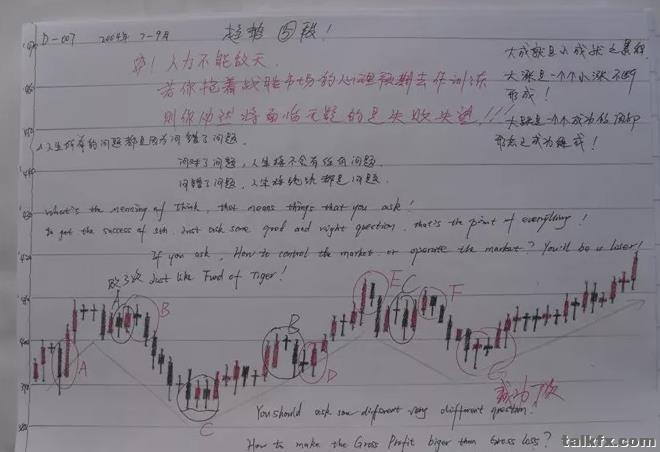 D-007 2004年 7-9月
人力不能敌天.
若你抱着战胜市场的心理预期去作训练
则你从此将面临无疑的是失败失望!!!
大成就是小成就之累积
大涨是一个个小涨不断
形成!
人生所有的问题都是因为问错了问题.
问对了问题,人生将不会有任何问题.
问错了问题,人生将统统都是问题.
what's the meaning of Think, that means things that you ask!
To get the success of sth. Just ask some good and right question, that's the point of everything!
If you ask, How to control the market or operate the market? You'll be a loser!
Just like Fund of Tiger!
A B E C F
B
A D G
C
成功7次
You should ask some different very different question.
How to make the Gross Profit biger than Gross loss?
talkfx.com